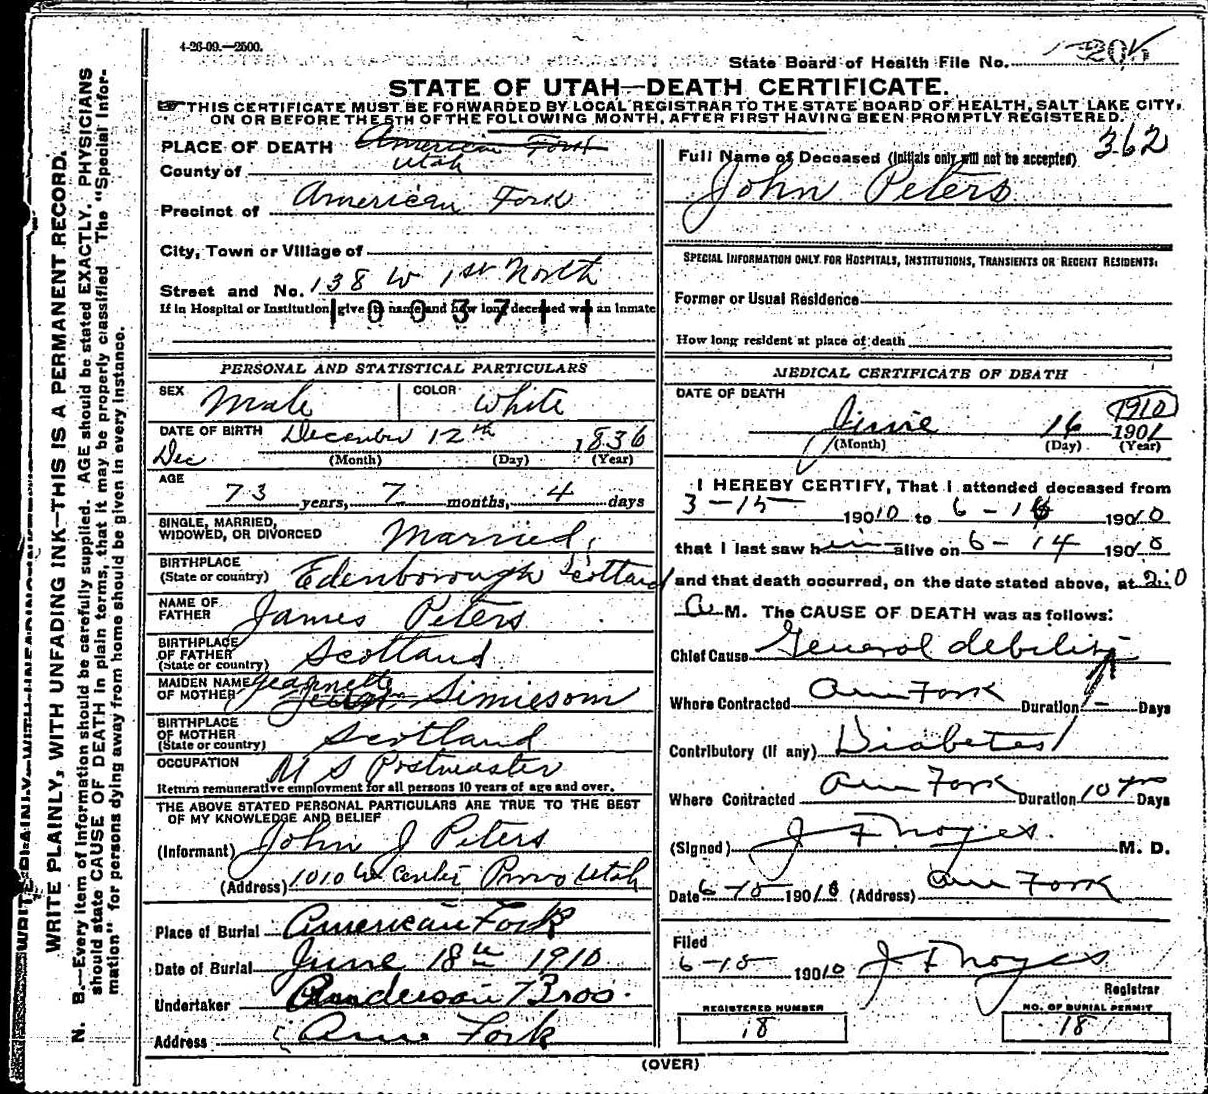 4-26-09.—2500.
State Board of Health File No. 205
STATE OF UTAH—DEATH CERTIFICATE.
THIS CERTIFICATE MUST BE FORWARDED BY LOCAL REGISTRAR TO THE STATE BOARD OF HEALTH, SALT LAKE CITY,
ON OR BEFORE THE 5TH OF THE FOLLOWING MONTH, AFTER FIRST HAVING BEEN PROMPTLY REGISTERED.
PLACE OF DEATH American Fork
County of Utah
Precinct of American Fork
City, Town or Village of
Street and No. 138 W 1st North
If in Hospital or Institution give its name and how long deceased was an inmate
10037
PERSONAL AND STATISTICAL PARTICULARS
SEX Male COLOR White
DATE OF BIRTH December 12th 1836
Dec (Month) (Day) (Year)
AGE
73 years, 7 months, 4 days
SINGLE, MARRIED,
WIDOWED, OR DIVORCED Married
BIRTHPLACE
(State or country) Edenborough Scottland
NAME OF
FATHER James Peters
BIRTHPLACE
OF FATHER
(State or country) Scottland
MAIDEN NAME
OF MOTHER Jeannette Simiesom
BIRTHPLACE
OF MOTHER
(State or country) Scottland
OCCUPATION M S Postmaster
Return remunerative employment for all persons 10 years of age and over.
THE ABOVE STATED PERSONAL PARTICULARS ARE TRUE TO THE BEST
OF MY KNOWLEDGE AND BELIEF
(Informant) John J Peters
(Address) 1010 W Center Provo Utah
Place of Burial American Fork
Date of Burial June 18th 1910
Undertaker Anderson Bros.
Address Am Fork
Full Name of Deceased (Initials only will not be accepted) 362
John Peters
SPECIAL INFORMATION ONLY FOR HOSPITALS, INSTITUTIONS, TRANSIENTS OR RECENT RESIDENTS:
Former or Usual Residence
How long resident at place of death
MEDICAL CERTIFICATE OF DEATH
DATE OF DEATH
1910
June 16 1901
(Month) (Day) (Year)
I HEREBY CERTIFY, That I attended deceased from
3-15 190 10 to 6-16 190 10
that I last saw him alive on 6-14 190 10
and that death occurred, on the date stated above, at 2:0
a M. The CAUSE OF DEATH was as follows:
Chief Cause General debility
Where Contracted Am Fork Duration — Days
Contributory (if any) Diabetes
Where Contracted Am Fork Duration 10 yrs Days
(Signed) J F Noyes M. D.
Date 6-18 190 10 (Address) Am Fork
Filed
6-18 190 10 J F Noyes
Registrar
REGISTERED NUMBER
18
NO. OF BURIAL PERMIT
18
(OVER)
WRITE PLAINLY, WITH UNFADING INK—THIS IS A PERMANENT RECORD.
N. B.—Every item of information should be carefully supplied. AGE should be stated EXACTLY. PHYSICIANS
should state CAUSE OF DEATH in plain terms, that it may be properly classified. The "Special Infor-
mation" for persons dying away from home should be given in every instance.